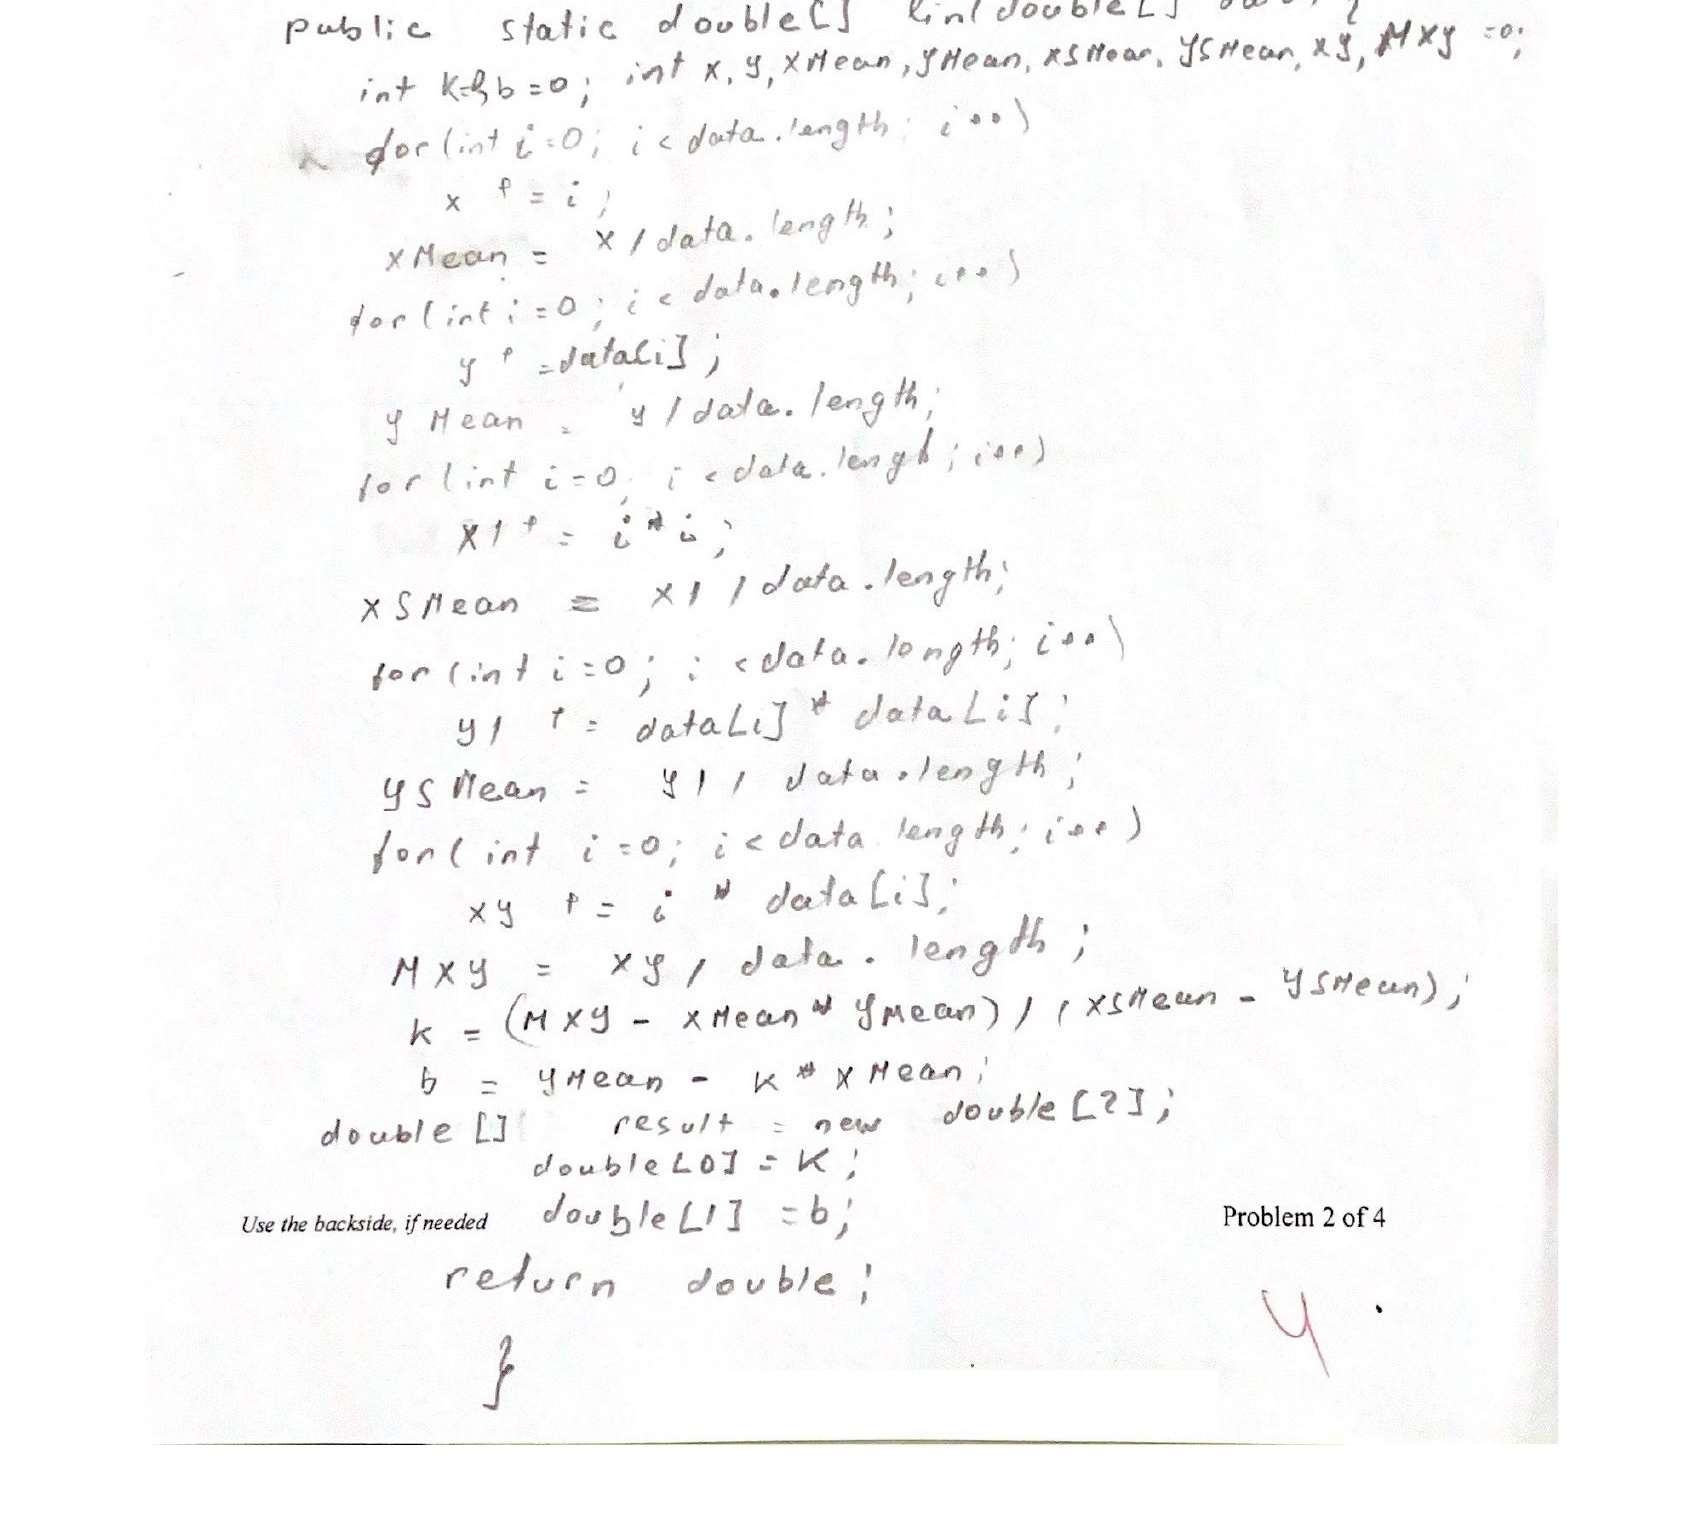 public static double[] lin(double[]
int k=0, b=0; int x, y, xMean, yMean, xSMean, ySMean, xy, Mxy =0;
for (int i=0; i < data.length; i++)
x += i;
xMean = x / data.length;
for (int i=0; i < data.length; i++)
y += data[i];
yMean = y / data.length;
for (int i=0; i < data.lengh; i++)
x1 += i * i;
xSMean = x1 / data.length;
for (int i=0; i < data.length; i++)
y1 += data[i] * data[i];
ySMean = y1 / data.length;
for (int i=0; i < data.length; i++)
xy += i * data[i];
Mxy = xy / data.length;
k = (Mxy - xMean * yMean) / (xSMean - ySMean);
b = yMean - k * xMean;
double [] result = new double [2];
double[0] = k;
Use the backside, if needed double[1] = b; Problem 2 of 4
return double;
}
4